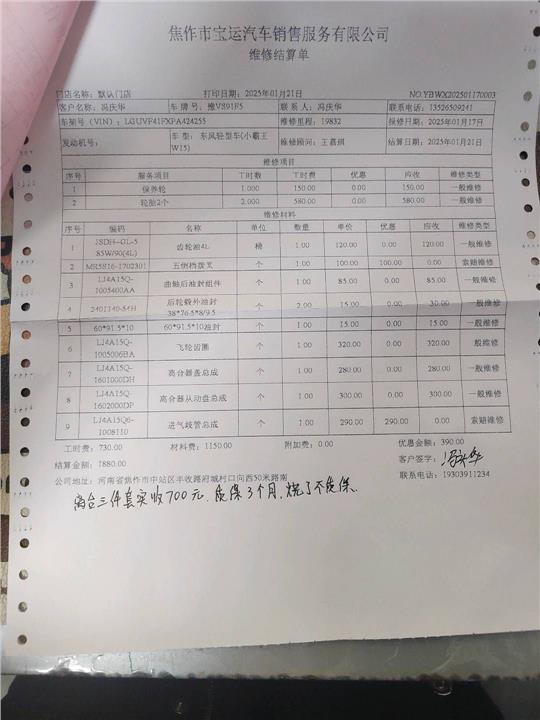 焦作市宝运汽车销售服务有限公司
维修结算单
门店名称：默认门店 打印日期：2025年01月21日 NO.YBWX202501170003
客户名称：冯庆华 车 牌 号：豫VS91F5 联 系 人：冯庆华 联系电话：13526509241
车架号（VIN）：LGUVF41FXPA424255 维修里程：19832 报修日期：2025年01月17日
发动机号： 车 型：东风轻型车(小霸王W15) 维修顾问：王嘉琪 结算日期：2025年01月21日
维修项目
序号 服务项目 工时数 工时费 优惠 应收 维修类型
1 保养轮 1.000 150.00 0.00 150.00 一般维修
2 轮胎2个 2.000 580.00 0.00 580.00 一般维修
维修材料
序号 编码 名称 单位 数量 单价 优惠 应收 维修类型
1 1SDH-GL-585W/90(4L) 齿轮油4L 桶 1.00 120.00 0.00 120.00 一般维修
2 MR5S16-1702301 五倒档拨叉 个 1.00 100.00 100.00 0.00 索赔维修
3 LJ4A15Q-1005400AA 曲轴后油封组件 个 1.00 85.00 0.00 85.00 一般维修
4 2401140-54H 后轮毂外油封38*76.5*8/9.5 个 2.00 15.00 0.00 30.00 一般维修
5 60*91.5*10 60*91.5*10油封 个 1.00 15.00 0.00 15.00 一般维修
6 LJ4A15Q-1005006BA 飞轮齿圈 个 1.00 320.00 0.00 320.00 一般维修
7 LJ4A15Q-1601000DH 离合器盖总成 个 1.00 280.00 0.00 280.00 一般维修
8 LJ4A15Q-1602000DP 离合器从动盘总成 个 1.00 300.00 0.00 300.00 一般维修
9 LJ4A15Q6-1008110 进气歧管总成 个 1.00 290.00 290.00 0.00 索赔维修
工时费：730.00 材料费：1150.00 附加费：0.00 优惠金额：390.00
结算金额：1880.00 客户签字：
公司地址：河南省焦作市中站区丰收路府城村口向西50米路南 联系电话：19303911234
离合三件套实收700元，质保3个月，烧了不质保